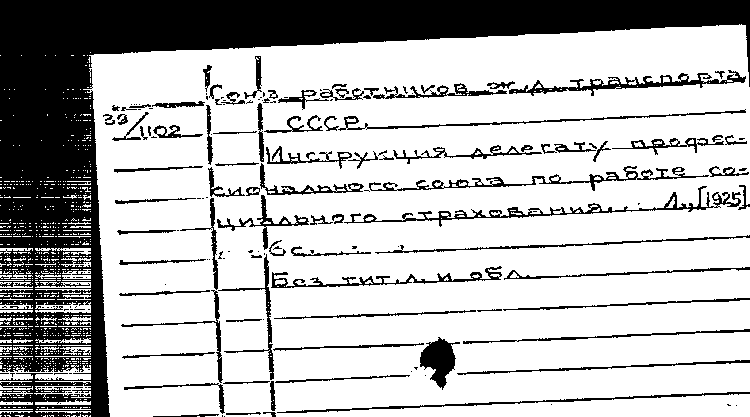 Союз работников ж.д. транспорта
39/1102
СССР.
Инструкция делегату профес-
сионального союза по работе со-
циального страхования... Л., [1925]
6с.
Без тит.л. и обл.